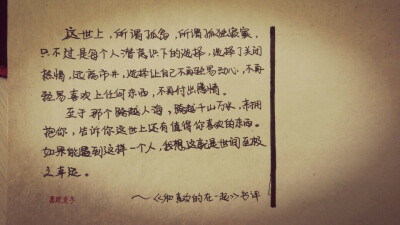 这世上，所谓孤岛，所谓孤独
只不过是每个人潜意识下的选择，选择了关闭
感情，远离市井，选择让自己不再轻易动心，不再
轻易喜欢上任何东西，不再付出感情。
至于那个跨越人海，跨越千山万水，来拥
抱你，告诉你这世上还有值得你喜欢的东西。
如果能遇到这样一个人，我想这就是世间至极
之幸运。
～《和喜欢的在一起》书评